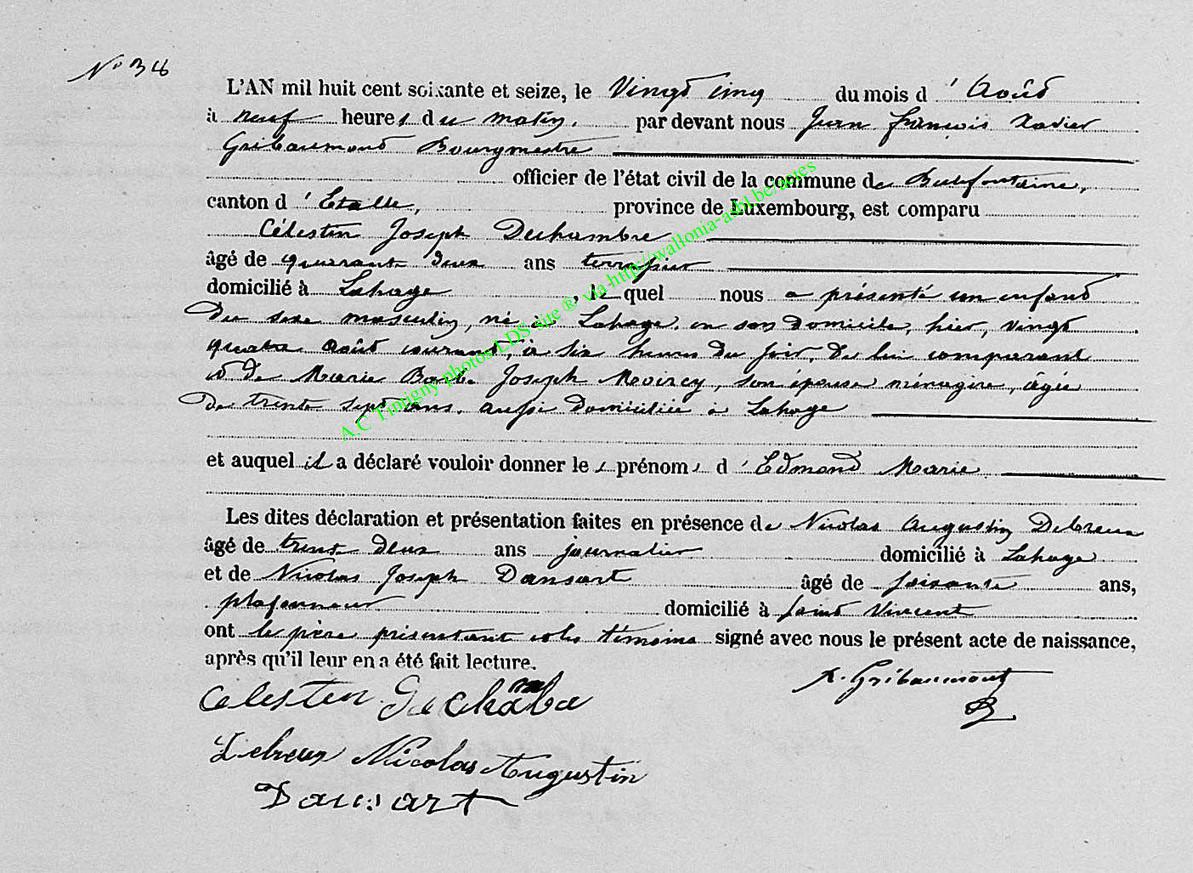 N° 36
L'AN mil huit cent soixante et seize, le Vingt cinq du mois d'Août
à neuf heures du matin, par devant nous Jean françois Xavier
Gribaumont Bourgmestre
officier de l'état civil de la commune de Bellefontaine,
canton d'Etalle, province de Luxembourg, est comparu
Célestin Joseph Dechambre
âgé de quarant deux ans terrassier
domicilié à Lahage, le quel nous a présenté un enfant
du sexe masculin, né à Lahage, en son domicile, hier, vingt
quatre août courant, à six heures du soir, de lui comparant
et de Marie Barbe Joseph, son épouse ménagère, âgée
de trente sept ans, aussi domiciliée à Lahage
et auquel il a déclaré vouloir donner les prénoms d'Edmond Marie
Les dites déclaration et présentation faites en présence de Nicolas Augustin Lebreux
âgé de trente deux ans journalier domicilié à Lahage
et de Nicolas Joseph Dansart âgé de soixante ans,
plafonneur domicilié à Saint Vincent
ont le père présentant et les témoins signé avec nous le présent acte de naissance,
après qu'il leur en a été fait lecture.
Celestin X. Gribaumont
Lebreux Nicolas Augustin
Dansart
A.C Tintigny photos LDS site ® via http://wallonia-asbl.be/actes